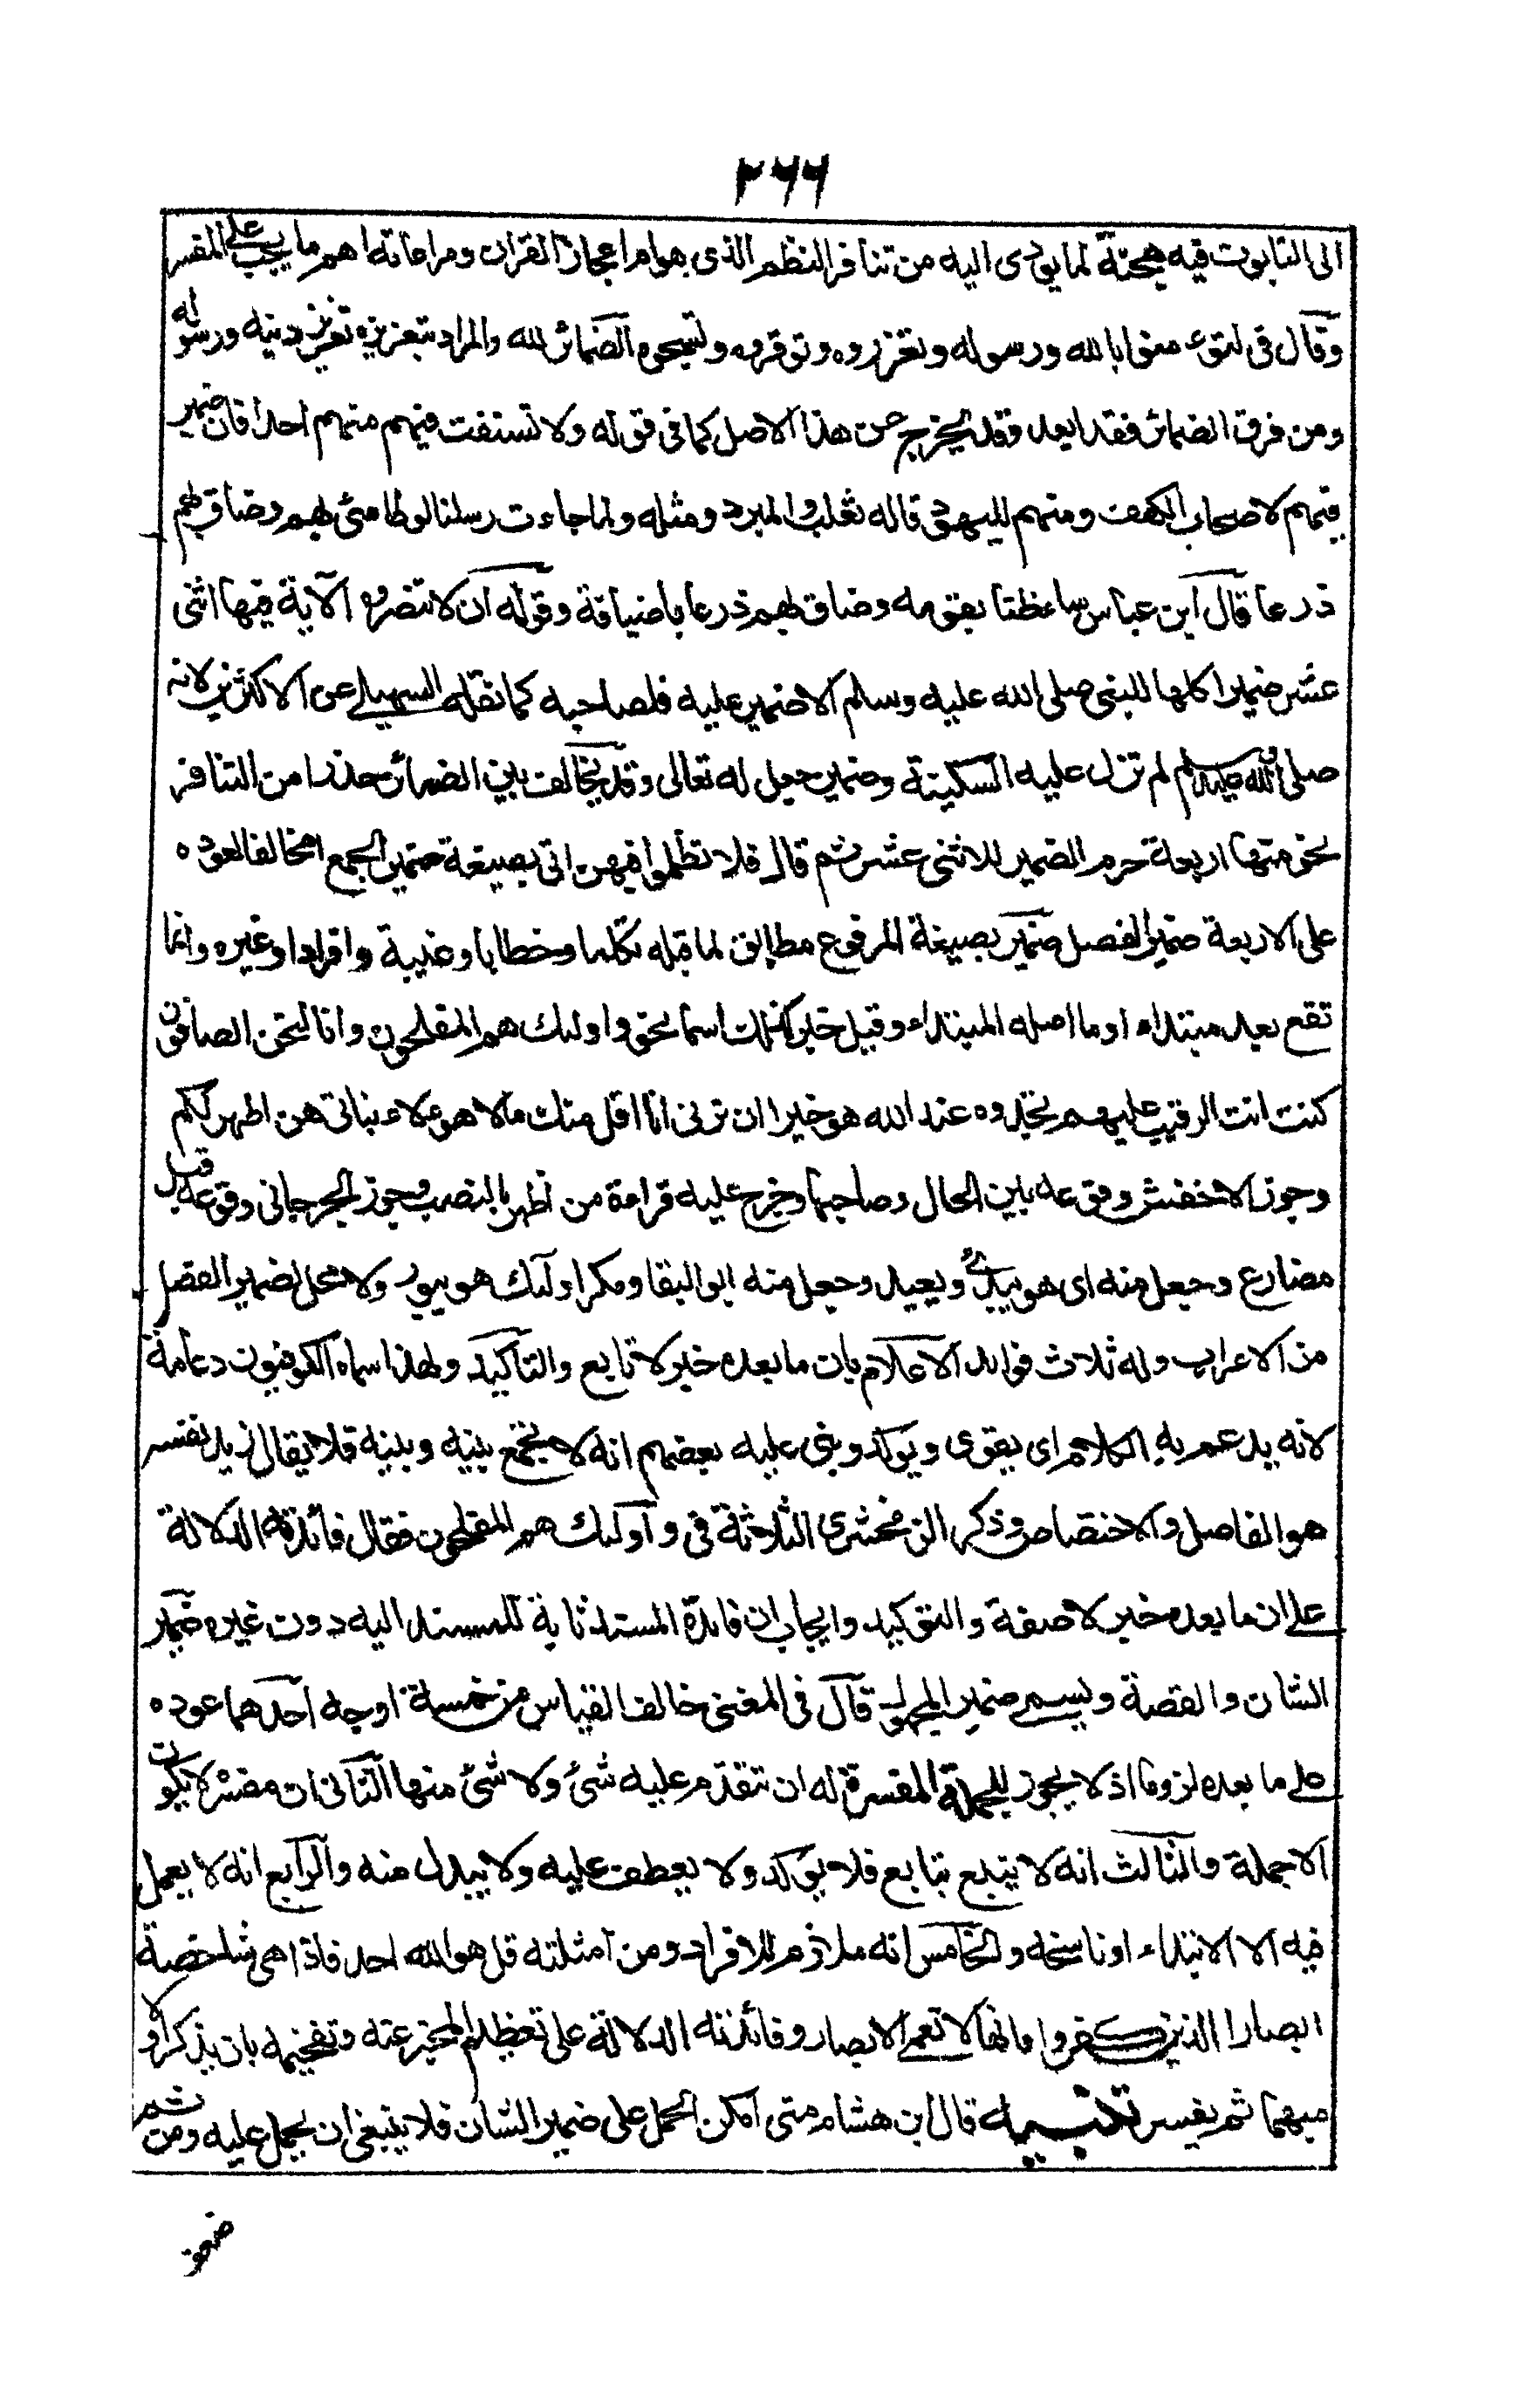 ٢٦٦
الى التابوت فيه هجنة لما يودى اليه من تنافر النظم الذى هو ام اعجاز القران ومراعاته اهم ما يجب على المفسر
وقال فى لتومنوا بالله ورسوله وتعزروه وتوقروه وتسبحوه الضمائر لله والمراد بتعزيزه تعزيز دينه ورسوله
ومن فرق الضمائر فقد ابعد وقد يخرج عن هذا الاصل كما فى قوله ولا تستفت فيهم منهم احدا فان ضمير
فيهم لاصحاب الكهف ومنهم لليهود قاله ثعلب والمبرد ومثله ولما جاءت رسلنا لوطا سئ بهم وضاق بهم
ذرعا قال ابن عباس ساء ظنا بقومه وضاق بهم ذرعا باضيافه وقوله ان لا تنصروه الآية فيها اثنى
عشر ضميرا كلها للنبى صلى الله عليه وسلم الا ضمير عليه فلصاحبه كما نقله السهيلى عن الاكثرين لانه
صلى الله عليه وسلم لم تزل عليه السكينة وضمير جعل له تعالى وقد يخالف بين الضمائر حذرا من التنافر
نحو منها اربعة حرم الضمير للاثنى عشر ثم قال فلا تظلموا فيهن اتى بصيغة ضمير الجمع مخالفا لعوده
على الاربعة ضمير الفصل ضمير بصيغة المرفوع مطابق لما قبله تكلما وخطابا وغيبة وافرادا وغيره وانما
تقع بعد مبتداء او ما اصله المبتداء وقبل خبر كذلك اسما نحو واولئك هم المفلحون وانا لنحن الصافون
كنت انت الرقيب عليهم تجدوه عند الله هو خيرا ان ترنى انا اقل منك مالا هؤلاء بناتى هن اطهر لكم
وجوز الاخفش وقوعه بين الحال وصاحبها وخرج عليه قراءة من اطهر بالنصب وجوز الجرجانى وقوعه قبل
مضارع وجعل منه اى هو يبدئ ويعيد وجعل منه ابو البقا ومكر اولئك هو يبور ولا محل لضمير الفصل
من الاعراب وله ثلاث فوايد الاعلام بان ما بعده خبر لا تابع والتاكيد ولهذا سماه الكوفيون دعامة
لانه يدعم به الكلام اى يقوى ويوكد وبنى عليه بعضهم انه لا يجمع بينه وبينه فلا يقال زيد نفسه
هو الفاصل والاختصاص وذكر الزمخشرى الثلاثة فى واولئك هم المفلحون فقال فائدته الدلالة
على ان ما بعده خبر لا صفة والتوكيد وايجاب ان فائدة المسند ثابة للمسند اليه دون غيره ضمير
الشان والقصة ويسمى ضمير المجهول قال فى المغنى خالف القياس من خمسة اوجه احدهما عوده
على ما بعده لزوما اذ لا يجوز للجملة المفسرة له ان تتقدم عليه شئ ولا شئ منها الثانى ان مفسره لا يكون
الا جملة والثالث انه لا يتبع بتابع فلا يوكد ولا يعطف عليه ولا يبدل منه والرابع انه لا يعمل
فيه الا الابتداء او ناسخه والخامس انه ملازم للافراد ومن امثلته قل هو الله احد فاذا هى شاخصة
ابصار الذين كفروا فانها لا تعمى الابصار وفائدته الدلالة على تعظيم المخبر عنه وتفخيمه بان يذكر اولا
مبهما ثم يفسر تنبيه قال ابن هشام متى امكن الحمل على ضمير الشان فلا ينبغى ان يحمل عليه ومن ثم
ضعف